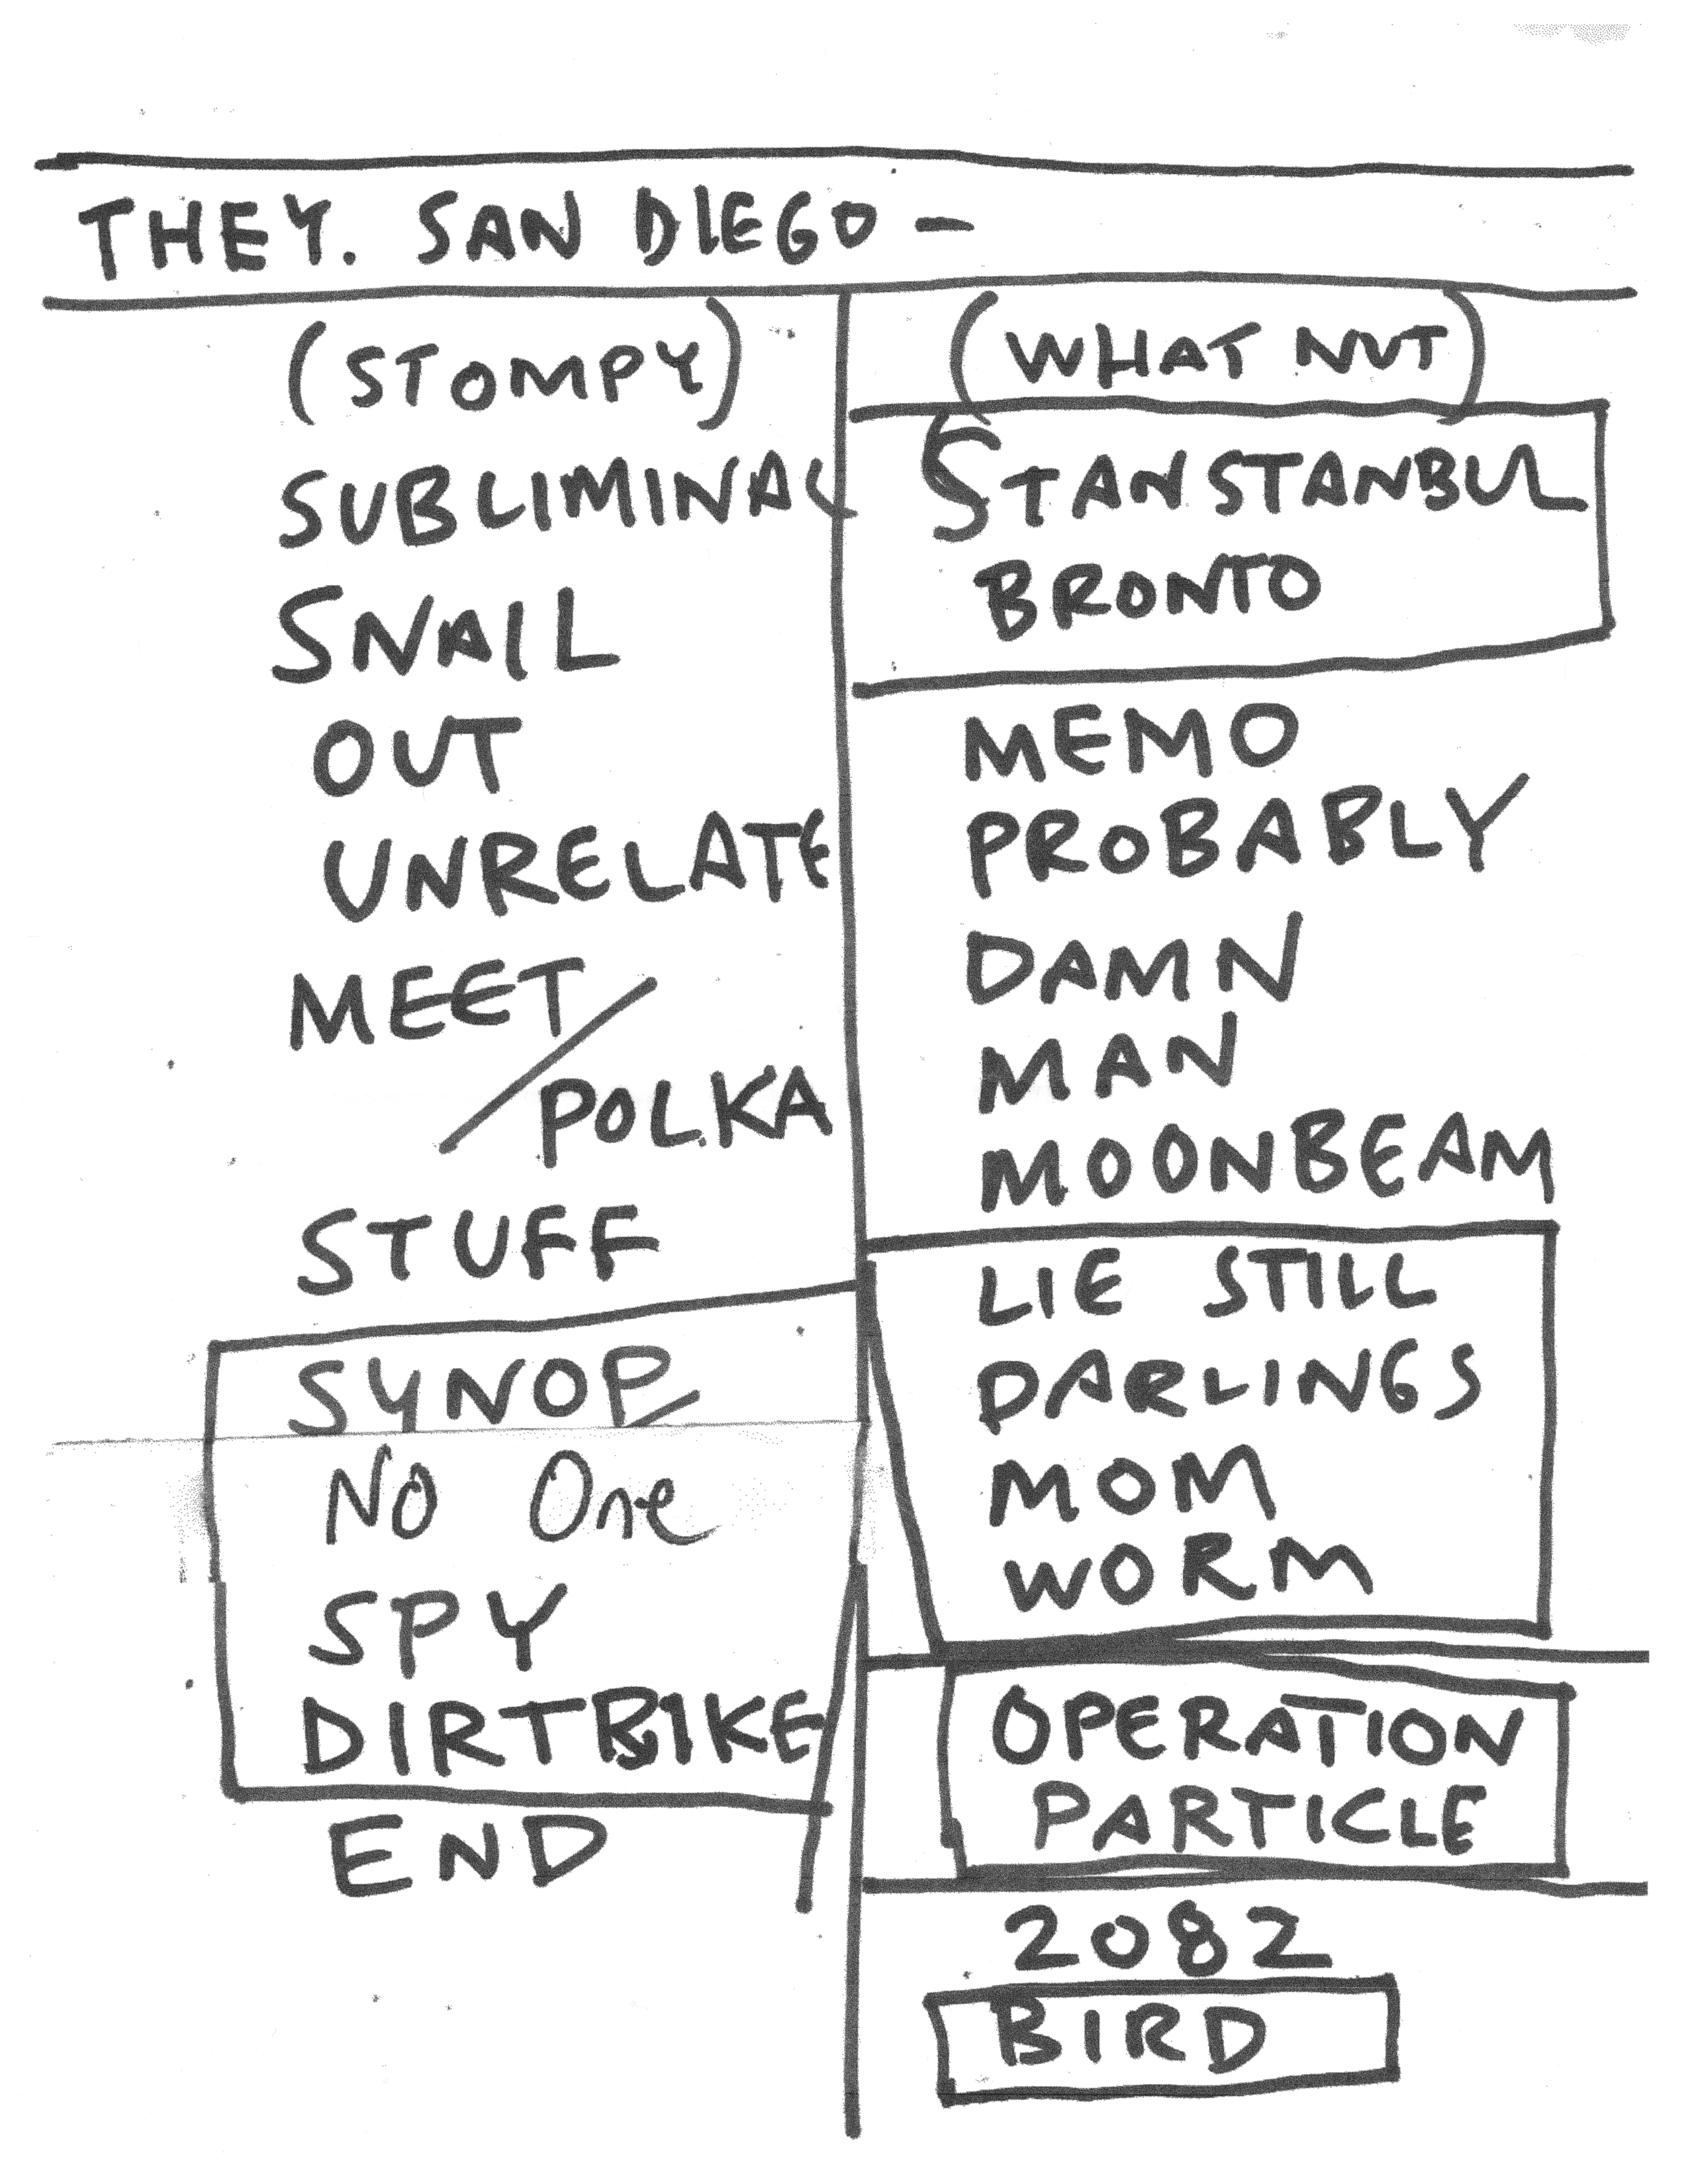 THEY. SAN DIEGO -
(STOMPY)
SUBLIMINAL
SNAIL
OUT
UNRELATE
MEET /
POLKA
STUFF
SYNOP
No One
SPY
DIRTBIKE
END
(WHAT NUT)
STANSTANBUL
BRONTO
MEMO
PROBABLY
DAMN
MAN
MOONBEAM
LIE STILL
DARLINGS
MOM
WORM
OPERATION
PARTICLE
2082
BIRD